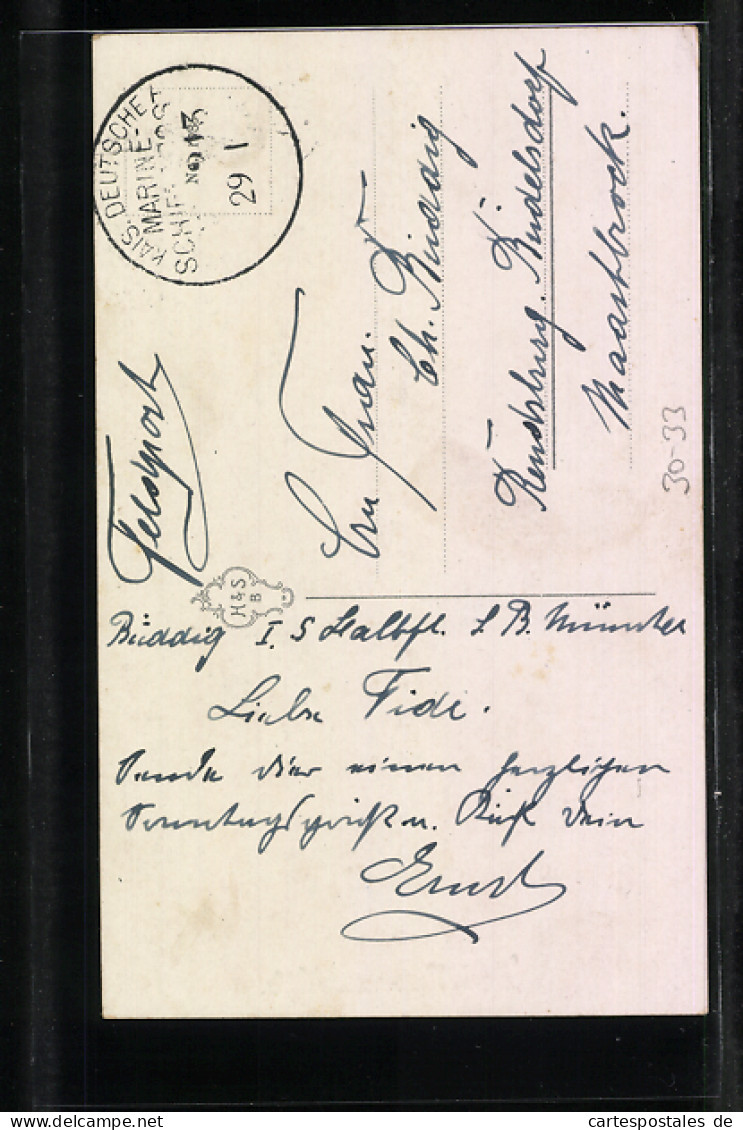 KAIS. DEUTSCHE
MARINE-
SCHIFFSPOST
No
29 1
Feldpost
Frau.
Ch. Büddig
Rendsburg. Büdelsdorf
Maastbrook.
30-33
H&S
B
Büddig I. S Halbfl. L B. Münster
Liebe Fide.
Sende dier einen herzligen
Sonntagsgruß u. Kuß dein
Ernst
cartespostales de